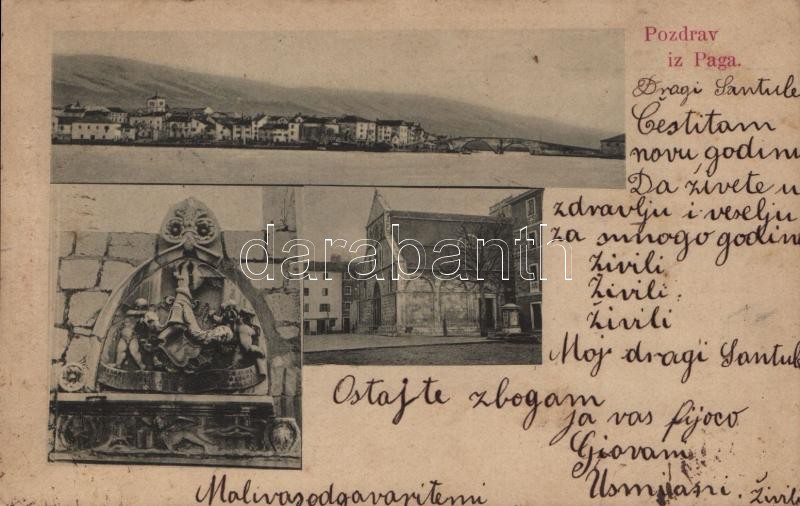 Pozdrav
iz Paga.
Dragi Santule
Čestitam
novu godinu
Da živete u
zdravlju i veselju
za mnogo godine
živili
živili.
živili
Moj dragi Santul
Ostajte zbogam
ja vas fijoco
Giovani
živili
darabanth.com